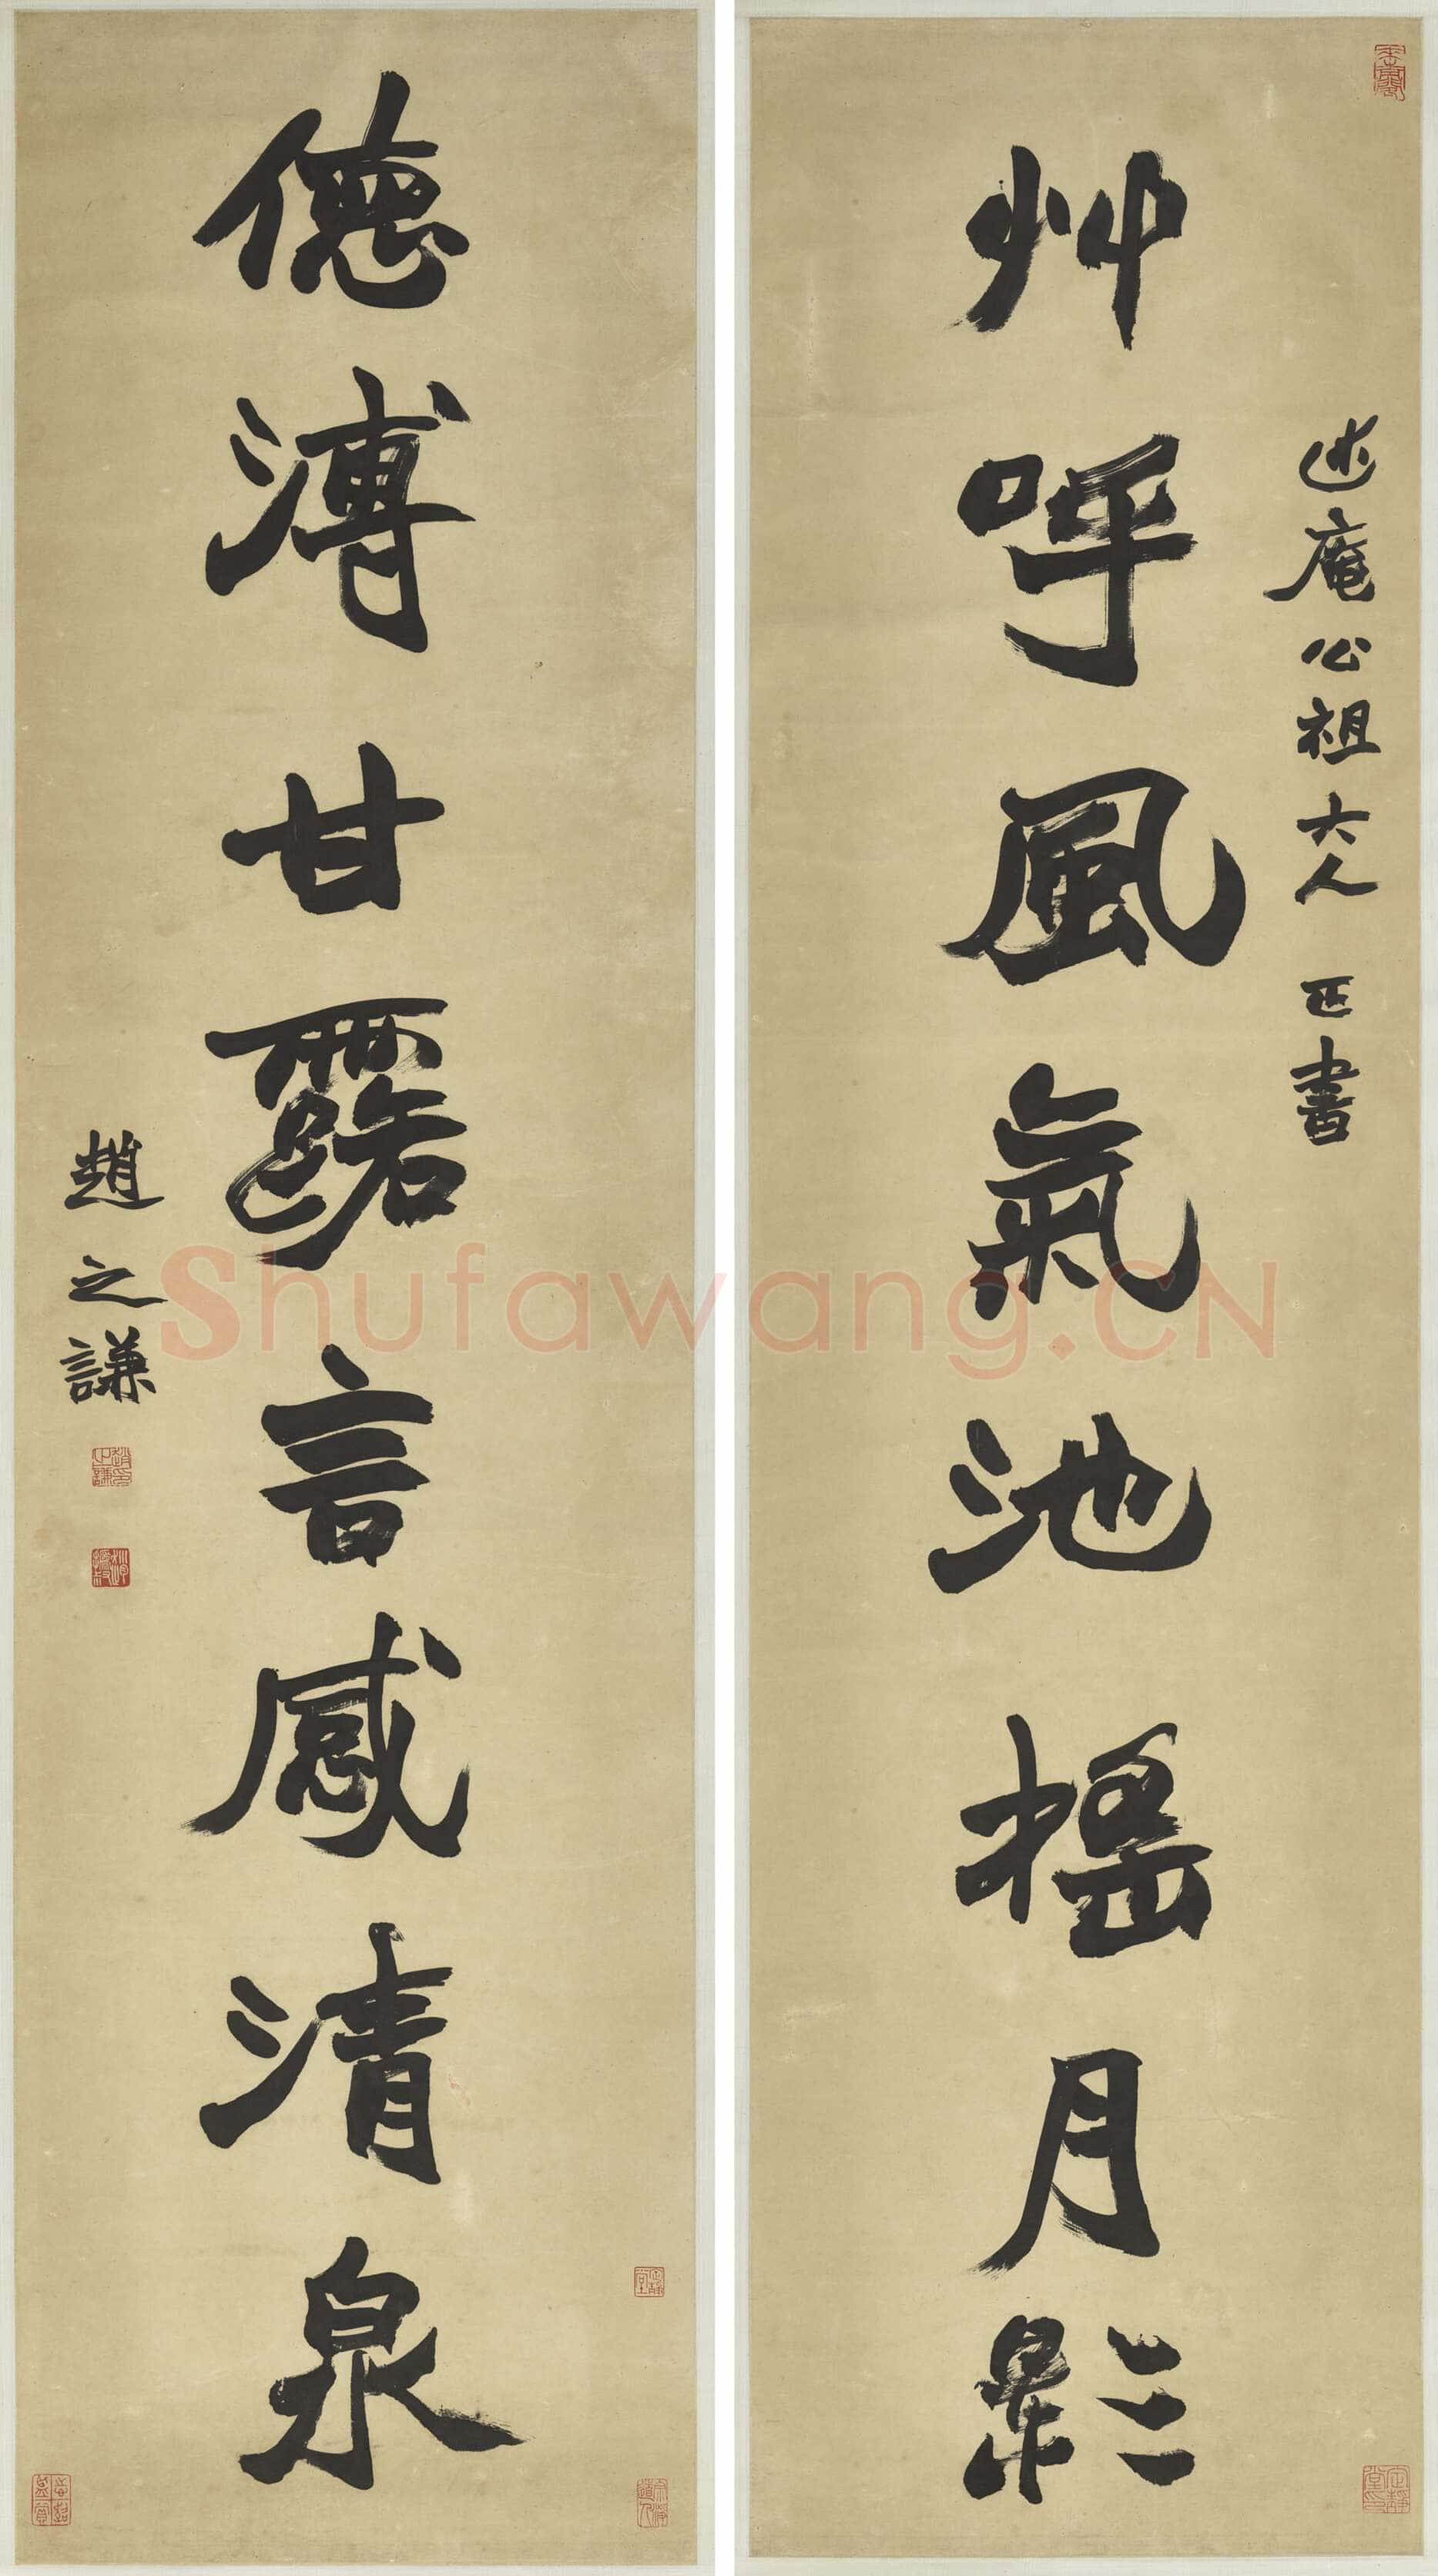 述庵公祖大人 正書
艸呼風氣池搖月影
德溥甘露言感清泉
趙之謙
Shufawang.CN